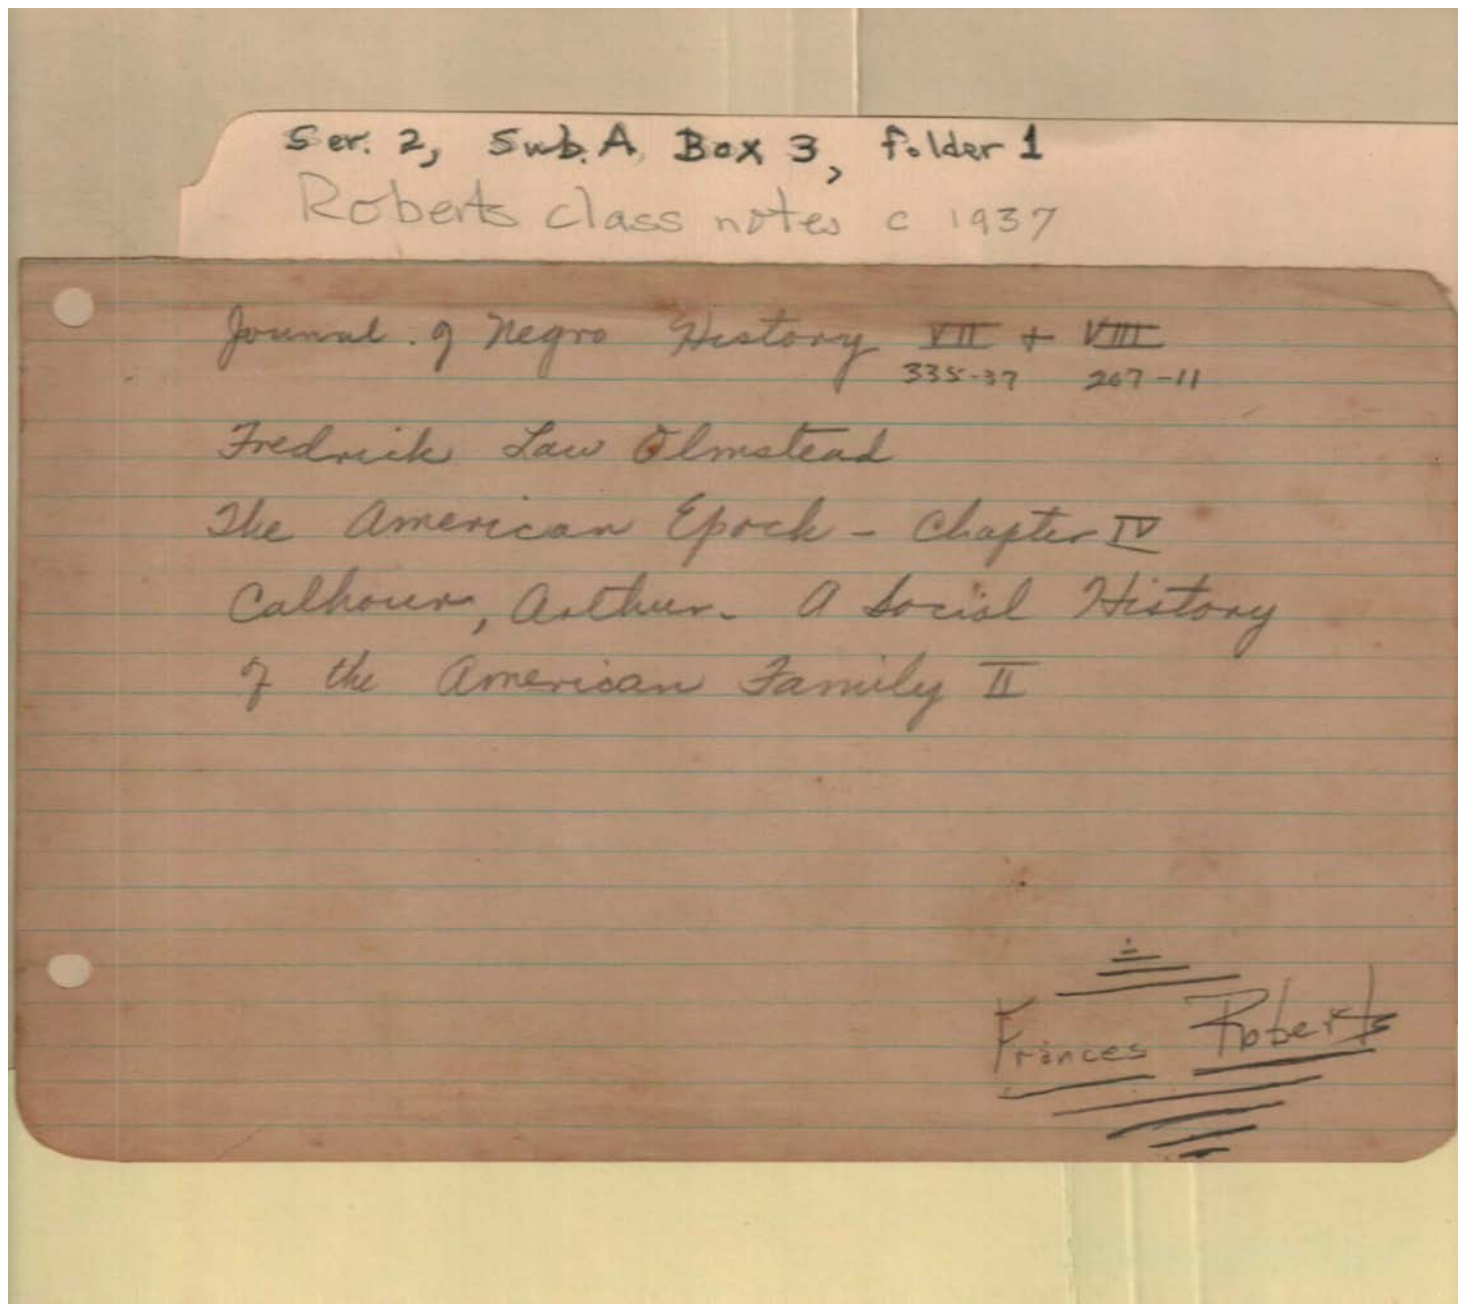 Ser. 2, Sub. A, Box 3, folder 1
Roberts class notes c 1937
Journal of Negro History VII + VIII
335-37 267-11
Fredrick Law Olmstead
The American Epoch - Chapter IV
Calhoun, Arthur. A Social History
of the American Family II
Frances Roberts